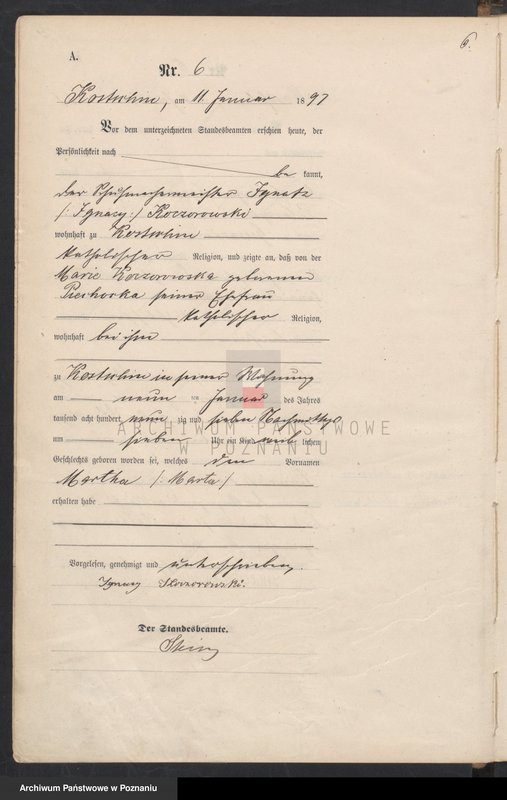 6.
A.
Nr. 6
Kostschin, am 11. Januar 1897
Vor dem unterzeichneten Standesbeamten erschien heute, der
Persönlichkeit nach
be kannt,
der Schuhmachermeister Ignatz
/: Ignacy :/ Koczorowski
wohnhaft zu Kostschin
katholischer Religion, und zeigte an, daß von der
Marie Koczorowska geborenen
Piechocka seiner Ehefrau
katholischer Religion,
wohnhaft bei ihm
zu Kostschin in seiner Wohnung
am neun ten Januar des Jahres
tausend acht hundert neun zig und sieben Nachmittags
um sieben Uhr ein Kind weib lichen
Geschlechts geboren worden sei, welches den Vornamen
Martha /: Marta :/
erhalten habe
Vorgelesen, genehmigt und unterschrieben.
Ignacy Koczorowski.
Der Standesbeamte.
ARCHIWUM PAŃSTWOWE
W POZNANIU
Archiwum Państwowe w Poznaniu